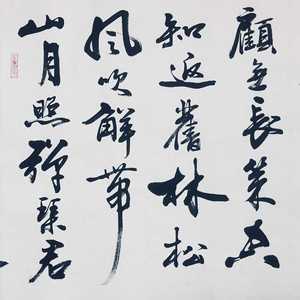 顧無長策空
知返舊林松
風吹解帶
山月照彈琴君